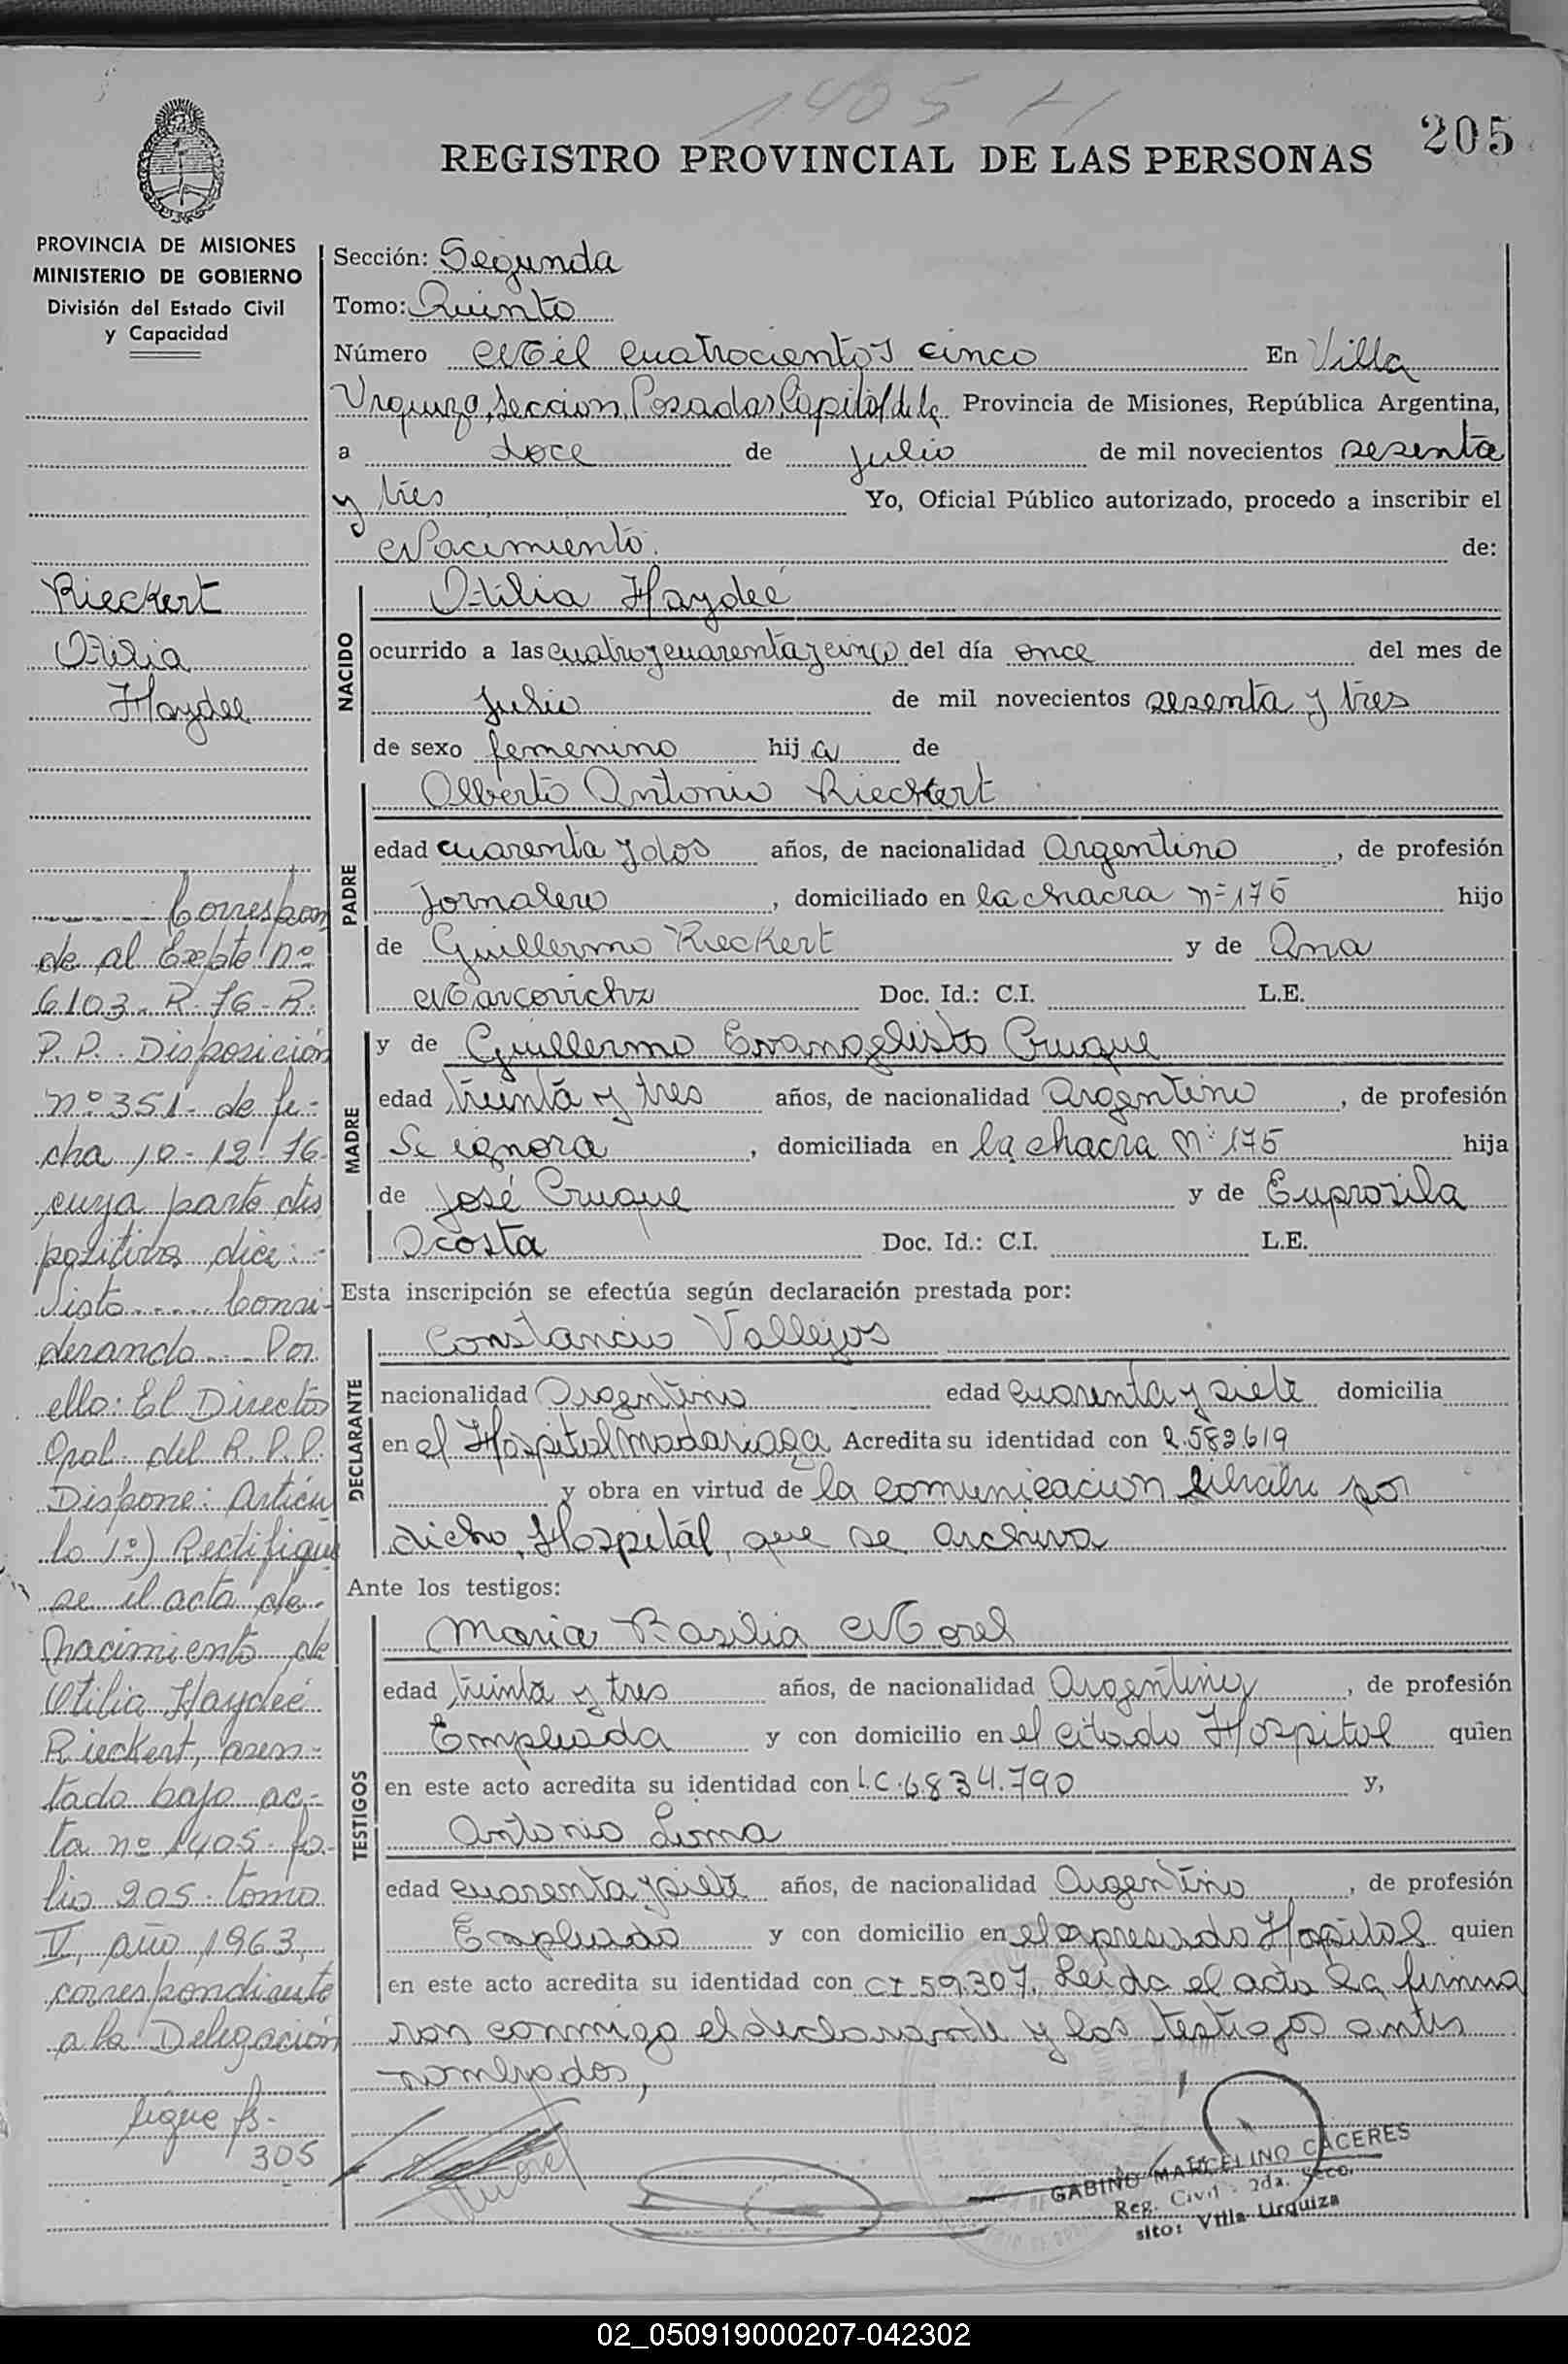 1405 H
205
REGISTRO PROVINCIAL DE LAS PERSONAS
PROVINCIA DE MISIONES
MINISTERIO DE GOBIERNO
División del Estado Civil
y Capacidad
Rieckert
Otilia
Haydee
Correspon
de al Expte nº
6103-R-76-R.
P.P. Disposición
nº 351- de fe-
cha 10-12-76
cuya parte dis
positiva dice:
Visto.... Consi-
derando.... Por
ello: El Director
Gral. del R.P.P.
Dispone: Artícu
lo 1º) Rectifíque
se el acta de
nacimiento de
Otilia Haydeé
Rieckert, asen-
tado bajo ac-
ta nº 1405- fo-
lio 205- tomo
V, año 1963,
correspondiente
a la Delegación
sigue fs-
305
Sección: Segunda
Tomo: Quinto
Número Mil cuatrocientos cinco En Villa
Urquiza, Seccion, Posadas, Capital de la Provincia de Misiones, República Argentina,
a doce de julio de mil novecientos sesenta
y tres Yo, Oficial Público autorizado, procedo a inscribir el
Nacimiento. de:
NACIDO
Otilia Haydeé
ocurrido a las cuatro y cuarenta y cinco del día once del mes de
Julio de mil novecientos sesenta y tres
de sexo femenino hija de
PADRE
Alberto Antonio Rieckert
edad cuarenta y dos años, de nacionalidad Argentino, de profesión
Jornalero, domiciliado en la chacra nº 175 hijo
de Guillermo Rieckert y de Ana
Marcovichz Doc. Id.: C.I. L.E.
MADRE
y de Guillermo Evangelista Cruque
edad treinta y tres años, de nacionalidad Argentino, de profesión
Se ignora, domiciliada en la chacra Nº 175 hija
de José Cruque y de Euprosila
Acosta Doc. Id.: C.I. L.E.
Esta inscripción se efectúa según declaración prestada por:
DECLARANTE
Constancio Vallejos
nacionalidad Argentino edad cuarenta y siete domicilia
en el Hospital Madariaga Acredita su identidad con 2.582619
y obra en virtud de la comunicacion por
dicho, Hospitál, que se archiva
Ante los testigos:
TESTIGOS
Maria Basilia Morel
edad treinta y tres años, de nacionalidad Argentina, de profesión
Empleada y con domicilio en el citado Hospital quien
en este acto acredita su identidad con L.C. 6.834.790 y,
Antonio Lima
edad cuarenta y siete años, de nacionalidad Argentino, de profesión
Empleado y con domicilio en el expresado Hospital quien
en este acto acredita su identidad con CI 59.307. Leida el acta la firma
ron conmigo el declarante y los testigos antes
nombrados,
GABINO MARCELINO CACERES
Reg. Civil - 2da. Secc.
sito: Villa Urquiza
02_050919000207-042302